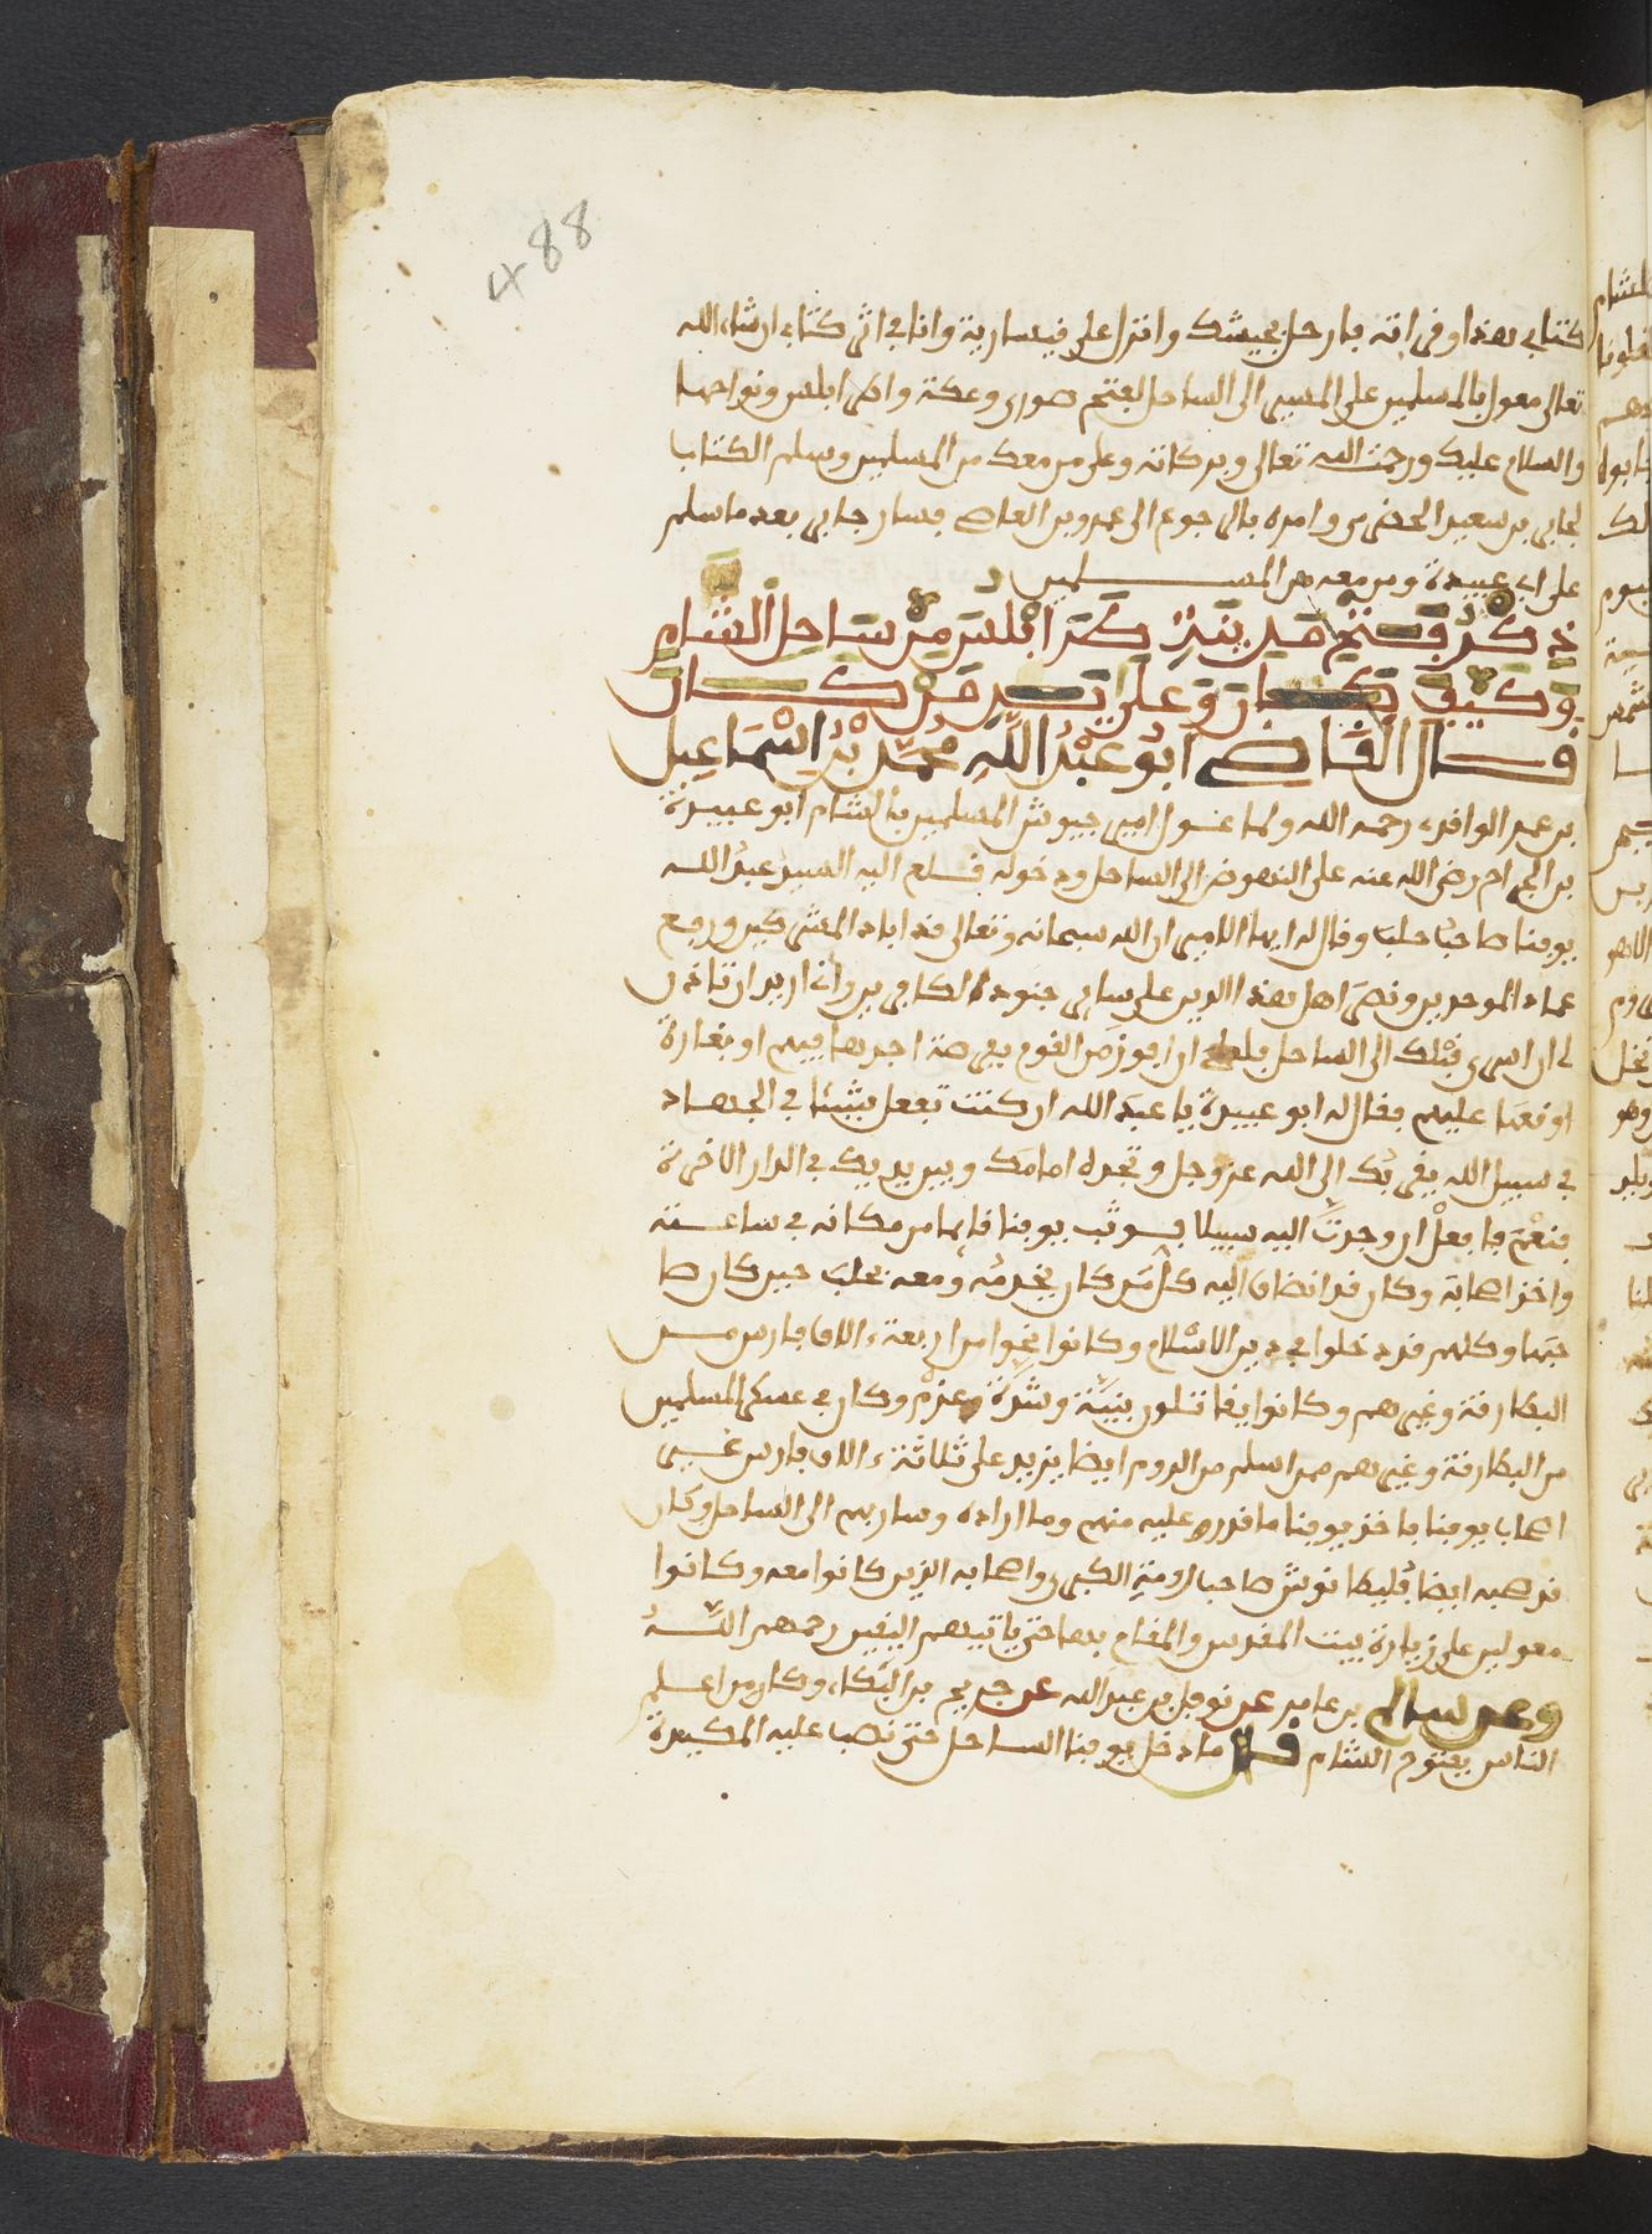 488
كتابي هذا وقراته فارحل بجيشك وانزل على قيسارية وانا في اثر كتابي ان شاء الله
تعالى معول بالمسلمين على المسير الى الساحل لفتح صور وعكة واطرابلس ونواحيها
والسلام عليك ورحمت الله تعالى وبركاته وعلى من معك من المسلمين وسلم الكتاب
لجابر بن سعيد الحضرمي وامره بالرجوع الى عمرو بن العاص فسار جابر بعد ما سلم
على ابي عبيدة ومن معه من المسلمين
ذكر فتح مدينة طرابلس من ساحل الشام
وكيف كان وعلى يد من كان
قال القاضي ابو عبد الله محمد بن اسماعيل
بن عمر الواقدي رحمه الله ولما عول امير جيوش المسلمين بالشام ابو عبيدة
بن الجراح رضي الله عنه على النهوض الى الساحل ودخوله قام اليه السيد عبد الله
يوقنا صاحب حلب وقال له ايها الامير ان الله سبحانه وتعالى قد اباد المشركين ورفع
عماد الموحدين ونصر اهل هذا الدين على ساير جنود الكافرين واني اريد ان تاذن
لي ان اسري قبلك الى الساحل فلعلي ان افوز من القوم بفرصة اجدها فيهم او بغارة
اوقعها عليهم فقال له ابو عبيدة يا عبد الله ان كنت تفعل شيئا في الجهاد
في سبيل الله يقربك الى الله عز وجل وتجده امامك وبين يديك في الدار الاخرة
فنعم فافعل ان وجدت اليه سبيلا فوثب يوقنا قايما من مكانه في ساعته
واخذ اصحابه وكان قد انضاف اليه كل من كان يخدمه ومعه بحلب حين كان صا
حبها وكلهم قد دخلوا في دين الاسلام وكانوا نحوا من اربعة ءالاف فارس من
البطارقة وغيرهم وكانوا يقاتلون بنية وشدة وعزم وكان في عسكر المسلمين
من البطارقة وغيرهم ممن اسلم من الروم ايضا يزيد على ثلاثة ءالاف فارس غير
اصحاب يوقنا فاخذ يوقنا ما قدر عليه منهم وما اراده وسار بهم الى الساحل وكان
قد صحبه ايضا فليطانوش صاحب رومة الكبرى واصحابه الذين كانوا معه وكانوا
معولين على زيارة بيت المقدس والمقام بها حتى ياتيهم اليقين رحمهم الله
وعن سالم بن عامر عن نوفل بن عبد الله عن جريج بن البكاء وكان من اعلم
الناس بفتوح الشام قال ما دخل يوقنا الساحل حتى نصب عليه المكيدة